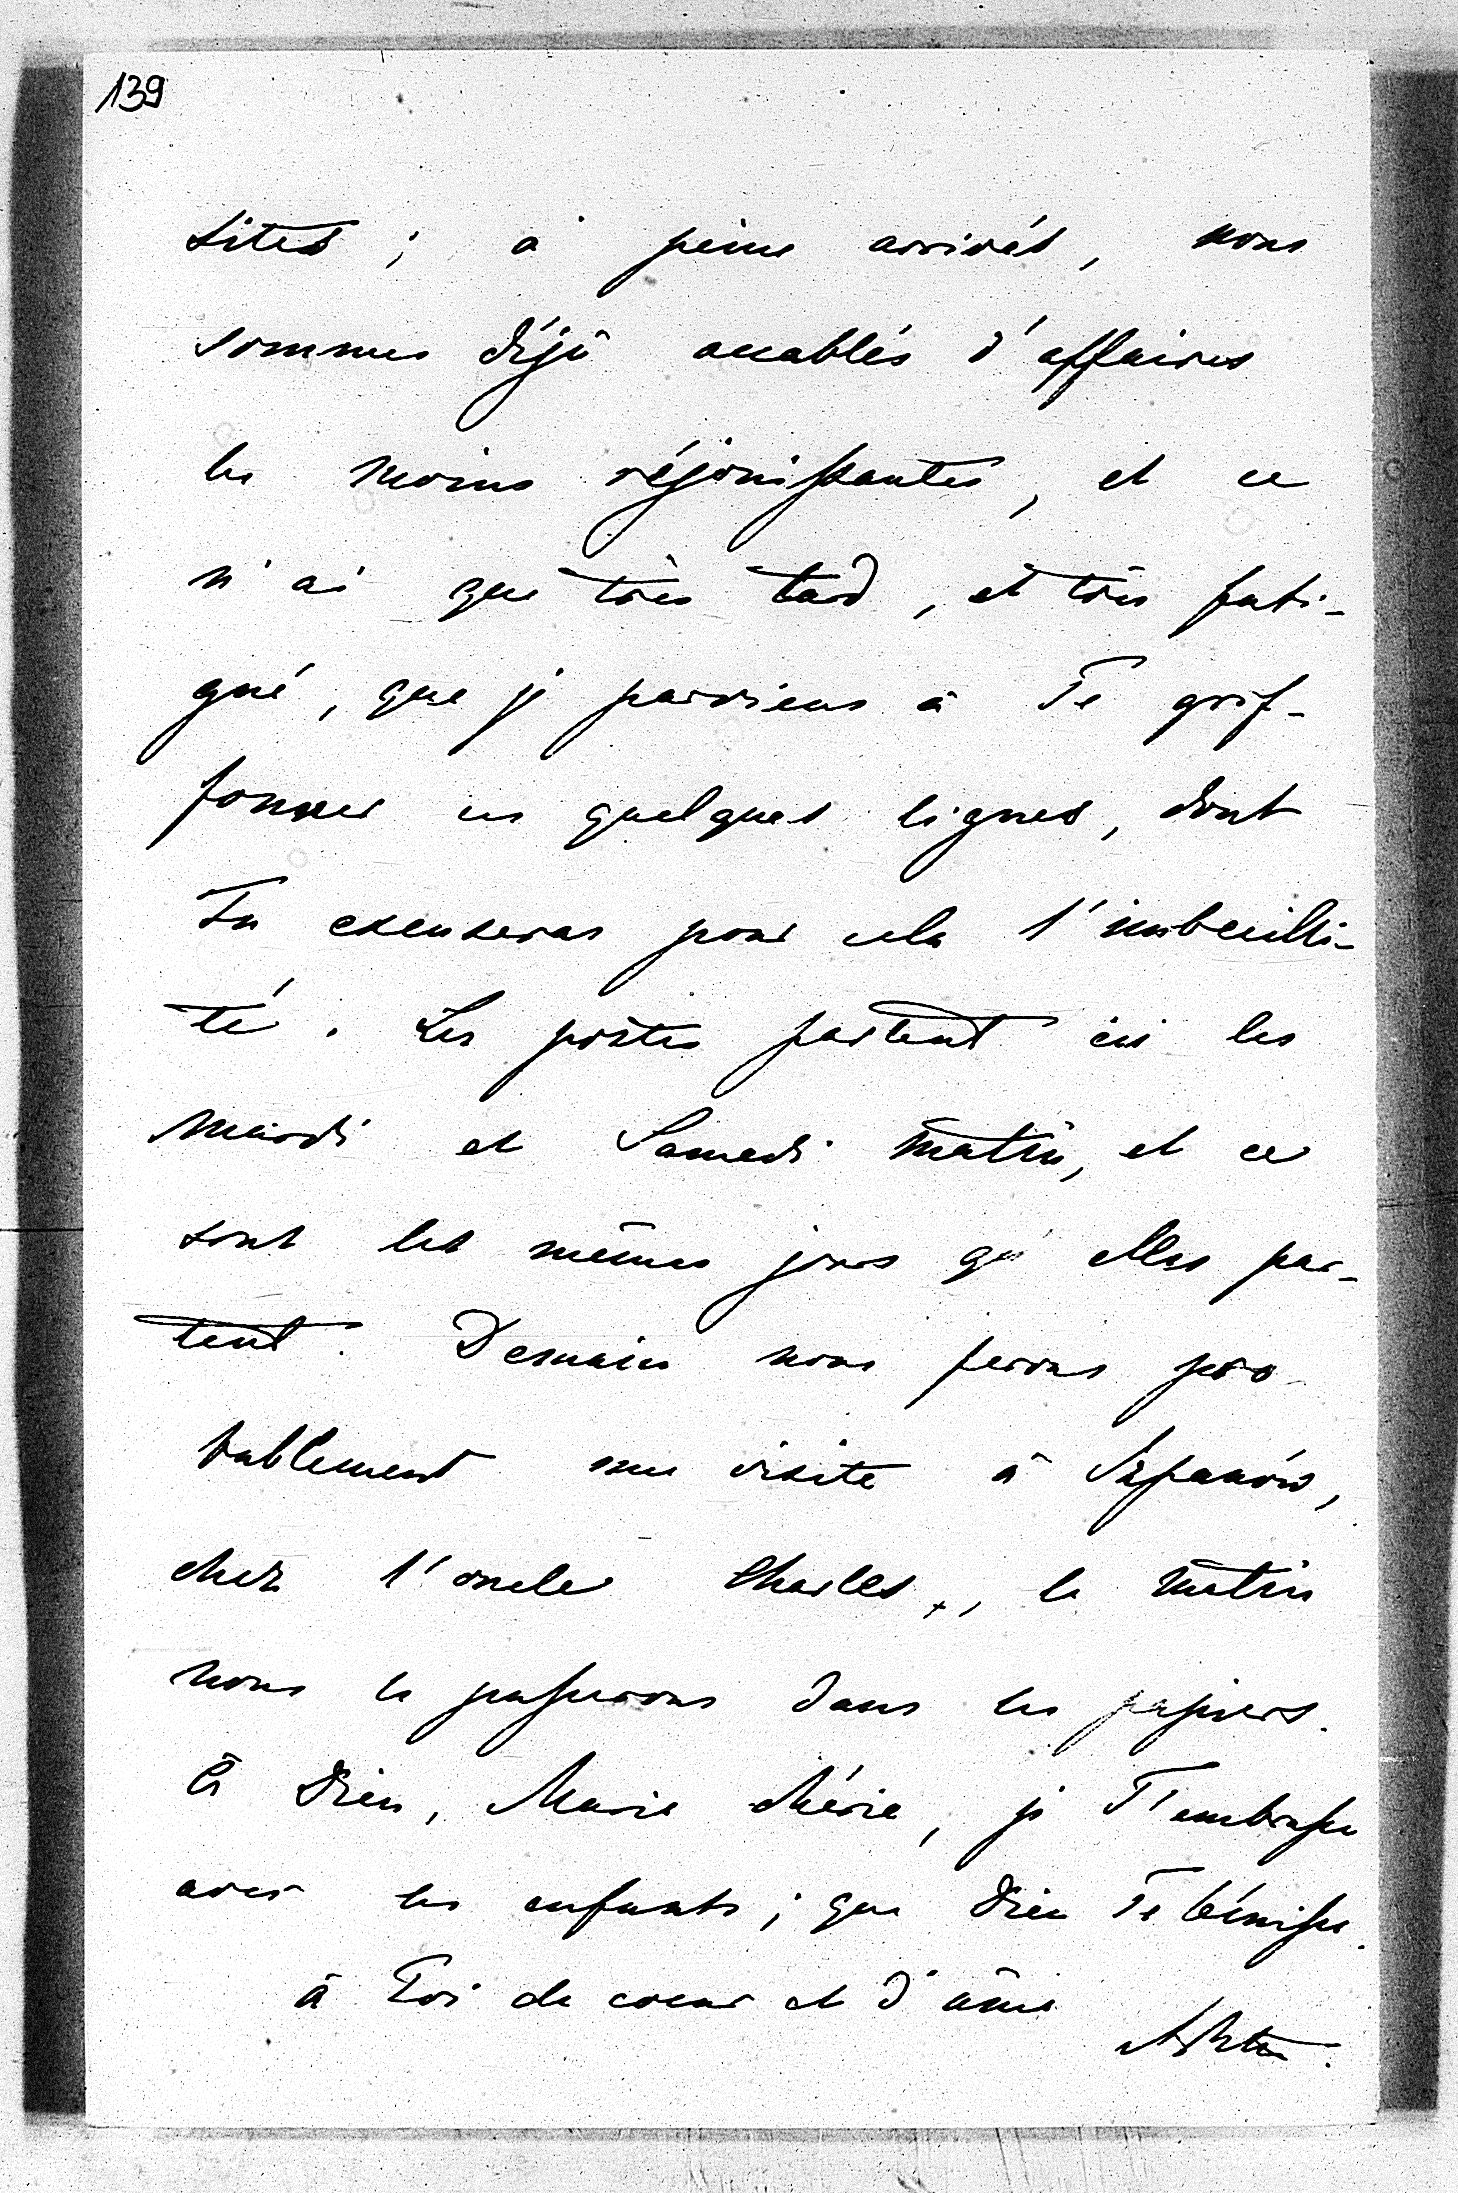 139
sites ; à peine arrivés, nous
sommes déjà accablés d'affaires
les moins réjouissantes, et ce
n'ai que très tard, et très fati-
gué, que je parviens à Te grif-
fonner ces quelques lignes, dont
Tu excuseras pour cela l'imbecilli-
té. Les postes partent ici les
mardi et Samedi matin, et ce
sont les mêmes jours qu'elles par-
tent. Demain nous ferons pro-
bablement une visite à Szpanów,
chez l'oncle Charles, le matin
nous le passerons dans les papiers.
à Dieu, Marie chérie, je T'embrasse
avec les enfants ; que Dieu Te bénisse.
à Toi de coeur et d'âme